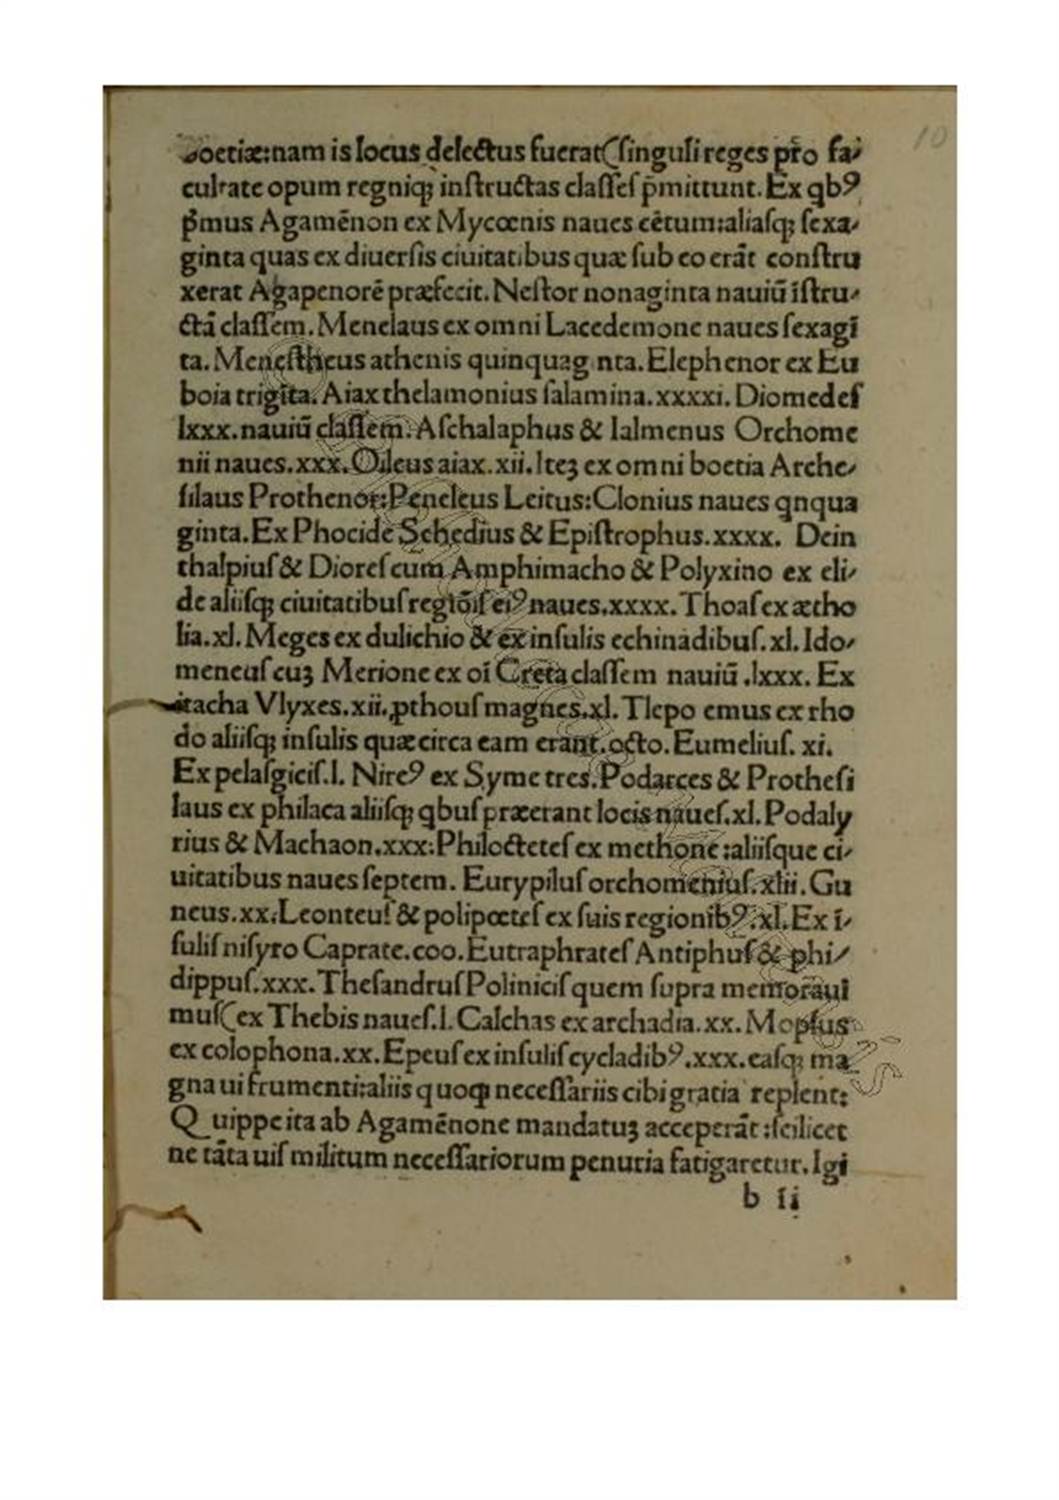 10
Boetiæ:nam is locus delectus fuerat(ſinguli reges pro fa⸗
cultate opum regniqꝫ inſtructas claſſeſ p̄mittunt. Ex qbꝰ
p̄mus Agamēnon ex Mycœnis naues cētum:aliaſqꝫ ſexa⸗
ginta quas ex diuerſis ciuitatibus quæ ſub eo erāt conſtru
xerat Agapenorē præfecit. Neſtor nonaginta nauiū īſtru⸗
ctā claſſem. Menelaus ex omni Lacedemone naues ſexagī
ta. Meneſtheus athenis quinquaginta. Elephenor ex Eu
boia trigīta. Aiax thelamonius ſalamina.xxxxi. Diomedeſ
lxxx.nauiū claſſem. Aſchalaphus & Ialmenus Orchome
nii naues.xxx.Oileus aiax.xii.Iteꝫ ex omni boetia Arche⸗
ſilaus Prothenor:Peneleus Leitus:Clonius naues qnqua
ginta.Ex Phocide Schedius & Epiſtrophus.xxxx. Dein
thalpiuſ & Dioreſ cum Amphimacho & Polyxino ex eli⸗
de aliiſqꝫ ciuitatibuſ regiōiſ eiꝰ naues.xxxx. Thoaſ ex ætho
lia.xl. Meges ex dulichio & ex inſulis echinadibuſ.xl. Ido⸗
meneuſ cuꝫ Merione ex oī Creta claſſem nauiū .lxxx. Ex
itacha Vlyxes.xii.ꝓthouſ magnes.xl. Tlepo emus ex rho
do aliiſqꝫ inſulis quæ circa eam erant.octo. Eumeliuſ. xi.
Ex pelaſgiciſ.l. Nireꝰ ex Syme tres.Podarces & Protheſi
laus ex philaca aliiſqꝫ qbuſ præerant locis naueſ.xl. Podaly
rius & Machaon.xxx:Philocteteſ ex methone:aliiſque ci⸗
uitatibus naues ſeptem. Eurypiluſ orchomeniuſ.xlii. Gu
neus.xx.Leonteuſ & polipœteſ ex ſuis regionibꝰ.xl. Ex ī⸗
ſuliſ niſyro Caprate.coo. Eutraphrateſ Antiphuſ & phi⸗
dippuſ.xxx. Theſandruſ Poliniciſ quem ſupra memorāui
muſ(ex Thebis naueſ.l. Calchas ex archadia.xx. Mopſus
ex colophona.xx. Epeuſ ex inſuliſ cycladibꝰ.xxx. eaſqꝫ ma
gna ui frumenti:aliis quoqꝫ neceſſariis cibi gratia replent:
Quippe ita ab Agamēnone mandatuꝫ acceperāt:ſcilicet
ne tāta uiſ militum neceſſariorum penuria fatigaretur. Igi
b ii